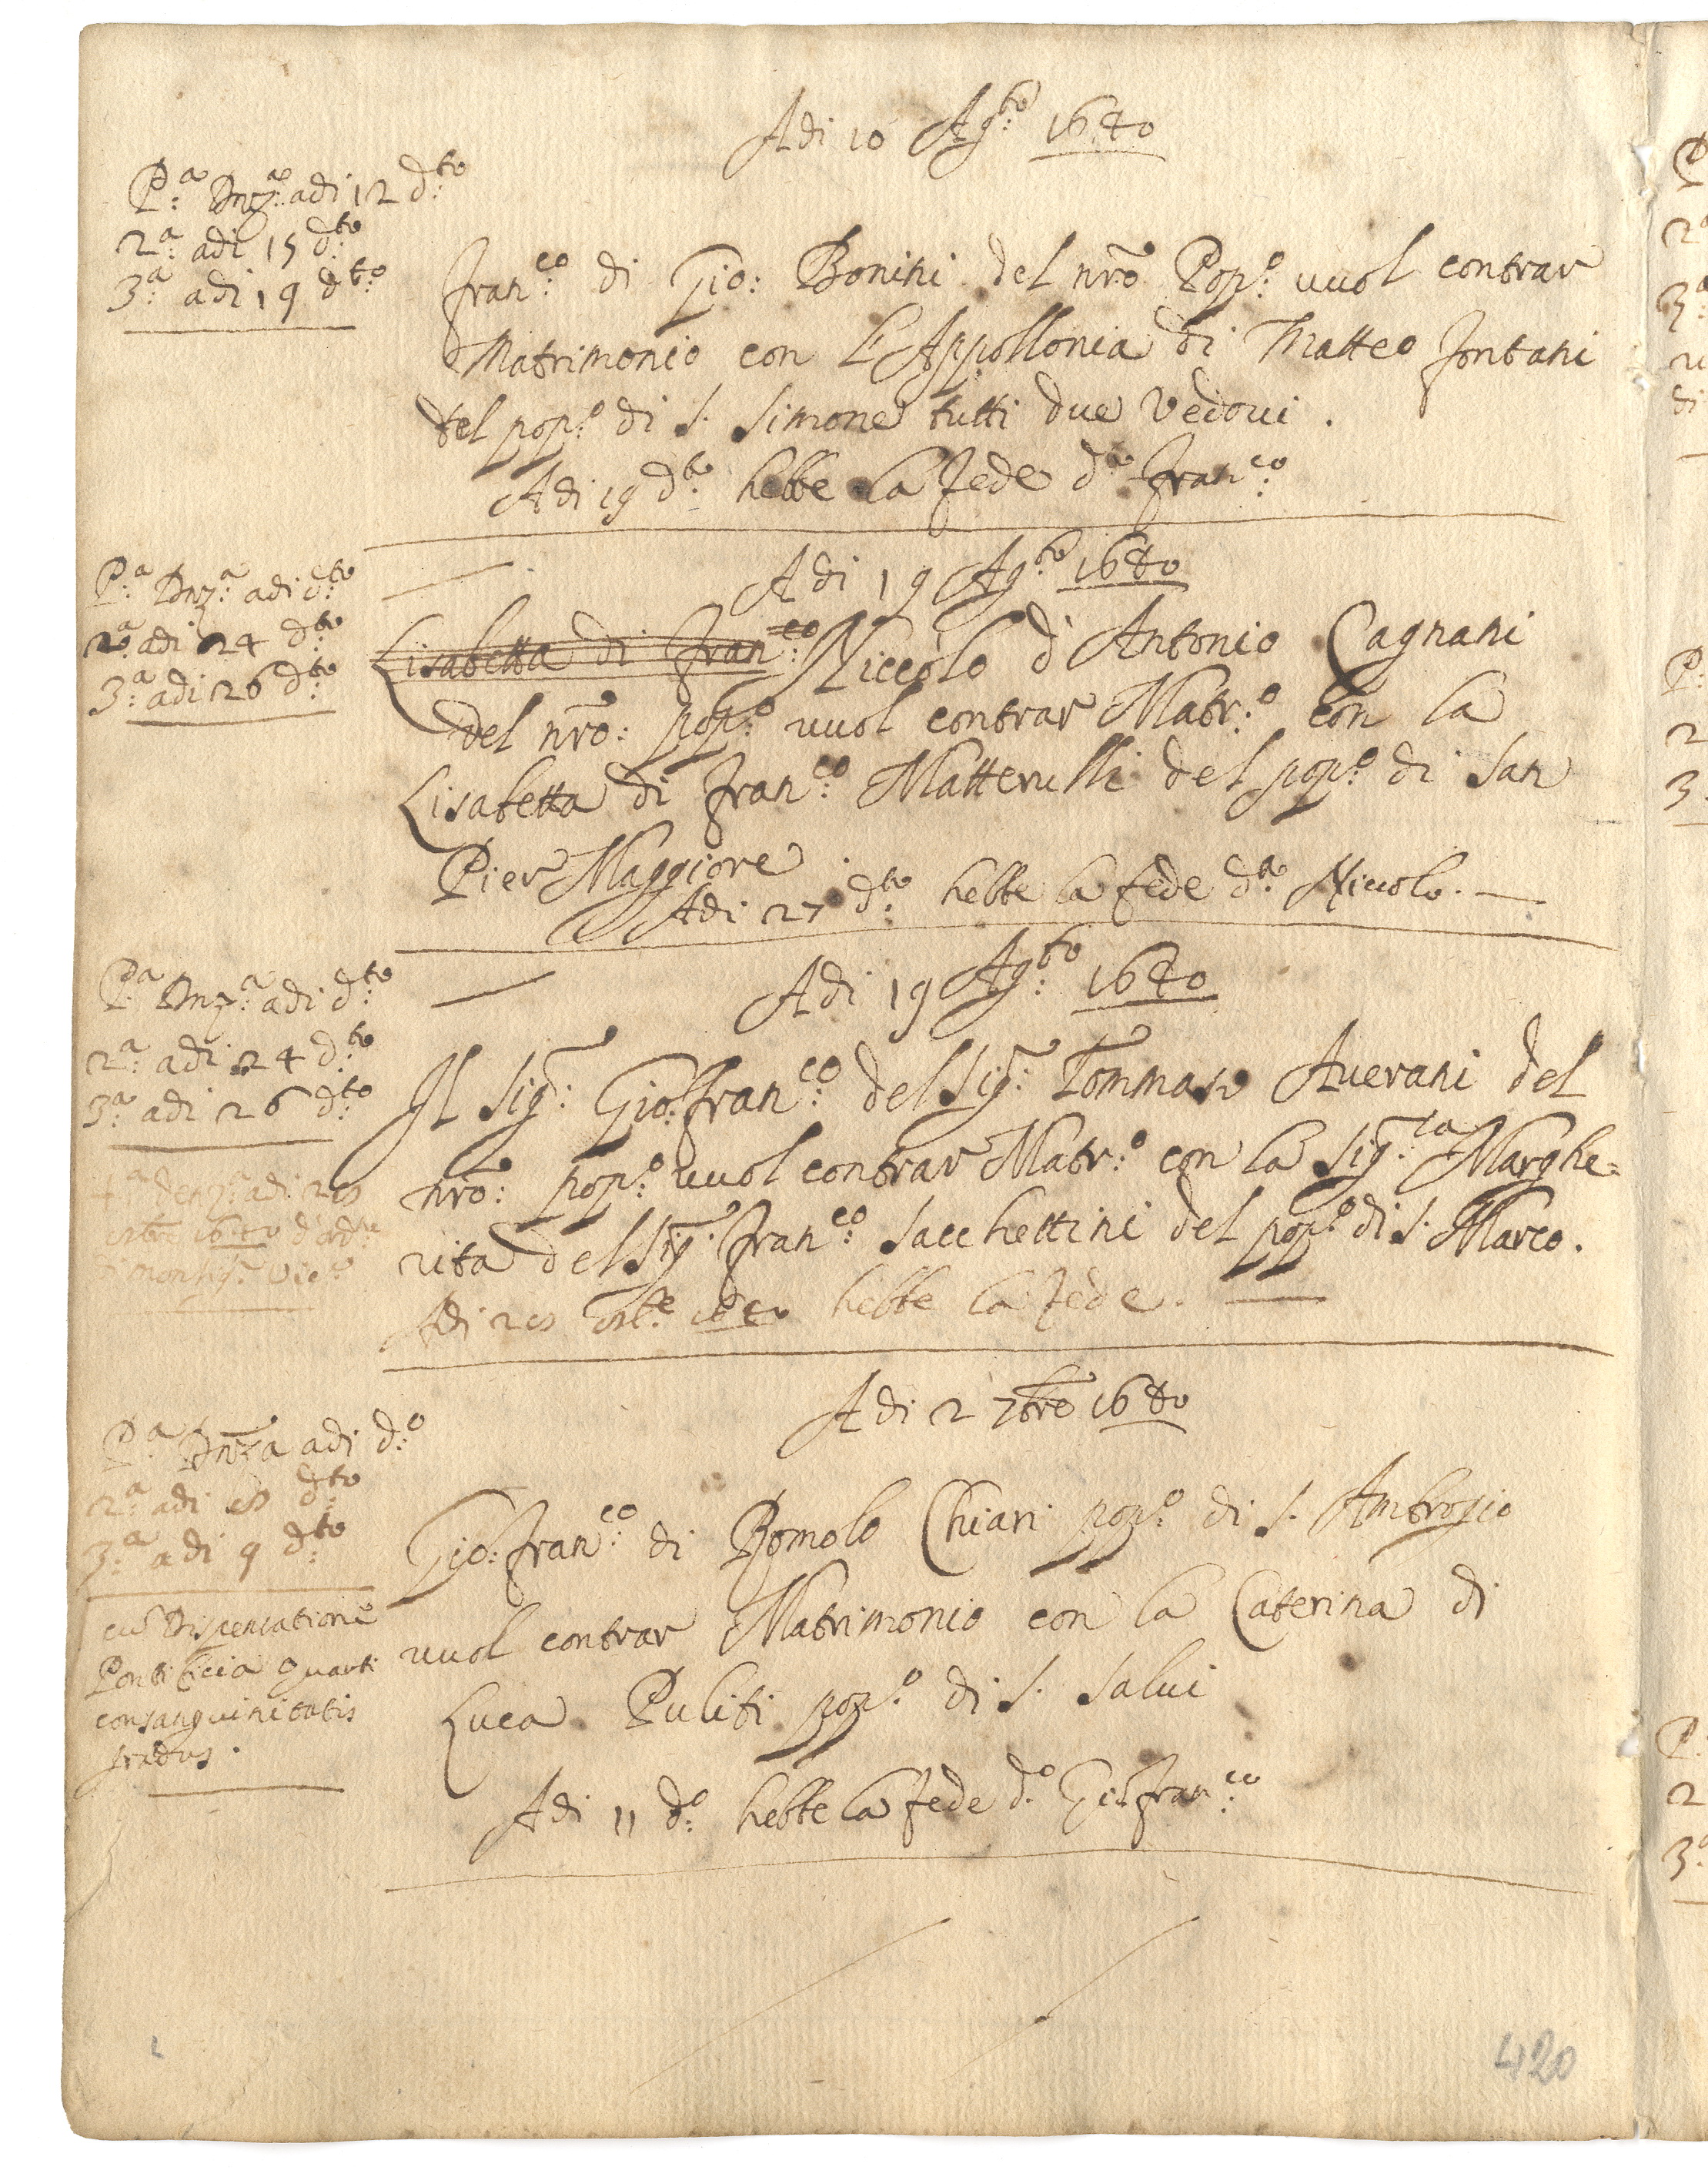 Adi 10 Ag:to 1640
P:a Dnz:a adi 12 d:to
2:a adi 15 d:to
3:a adi 19 d:to
Fran:co di Gio: Bonini del nro Pop:o vuol contrar
Matrimonio con L'Appollonia di Matteo Fontani
del pop:o di S. Simone tutti due Vedovi.
Adi 19 d:to hebbe la fede d:o Fran:co
Adi 19 Ag:to 1640
P:a Dnz:a adi d:to
2:a adi 24 d:to
3:a adi 26 d:to
Lisabetta di Fran:co Niccolo d'Antonio Cagnani
del nro: pop:o vuol contrar Matr:o con la
Lisabetta di Fran:co Matterulli del pop:o di San
Pier Maggiore
Adi 27 d:to hebbe la fede d:o Niccolo.
Adi 19 Ag:to 1640
P:a Dnz:a adi d:to
2:a adi 24 d:to
3:a adi 26 d:to
Il Sig: Gio:Fran:co del Sig: Tommaso Averani del
nro: pop:o vuol contrar Matr:o con la Sig:ra Marghe=
rita del Sig: Fran:co Sacchettini del pop:o di S. Marco.
Adi 1640 hebbe la fede.
Adi 2 7bre 1640
P:a Dnza adi d:o
2:a adi d:to
3:a adi 9 d:to
cu Dispensatione
Pontificia quarti
consanguinitatis
gradus.
Gio:Fran:co di Romolo Chiari pop:o di S. Ambrogio
vuol contrar Matrimonio con la Caterina di
Luca Puliti pop:o di S. Salvi
Adi 11 d:o hebbe la fede d:o Gio:Fran:co
420